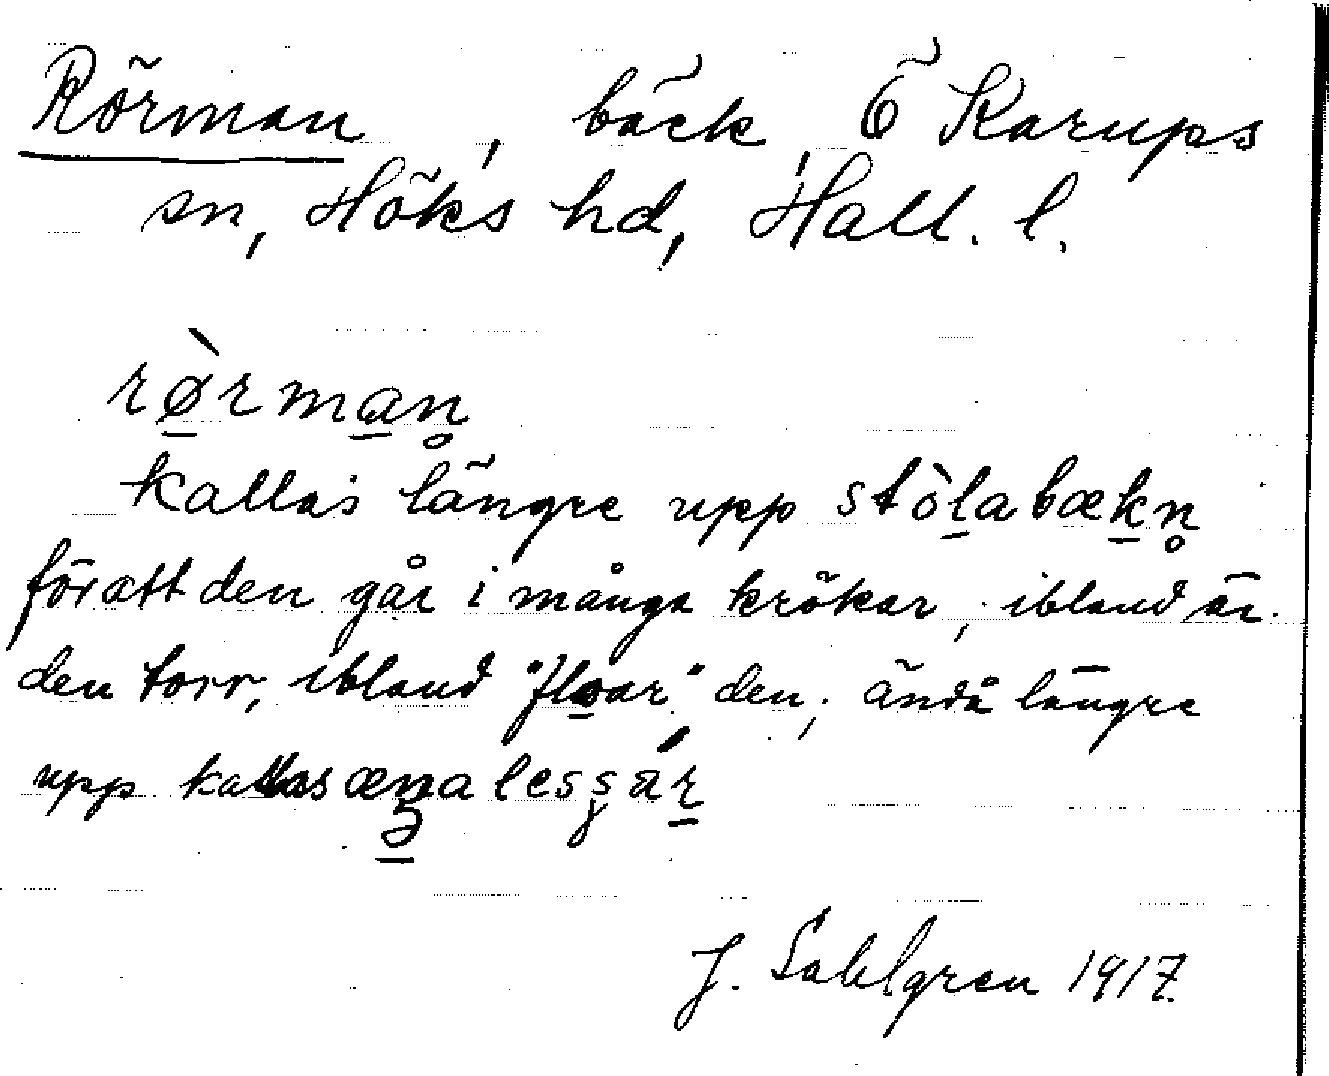 Rörman , bäck, Ö Karups
sn, Höks hd, Hall. l.
rø̀rman̥
kallas längre upp stòlabækn̥
föratt den går i många krökar, ibland är
den torr, ibland "floar" den; ändå längre
upp kallas
J. Sahlgren 1917.